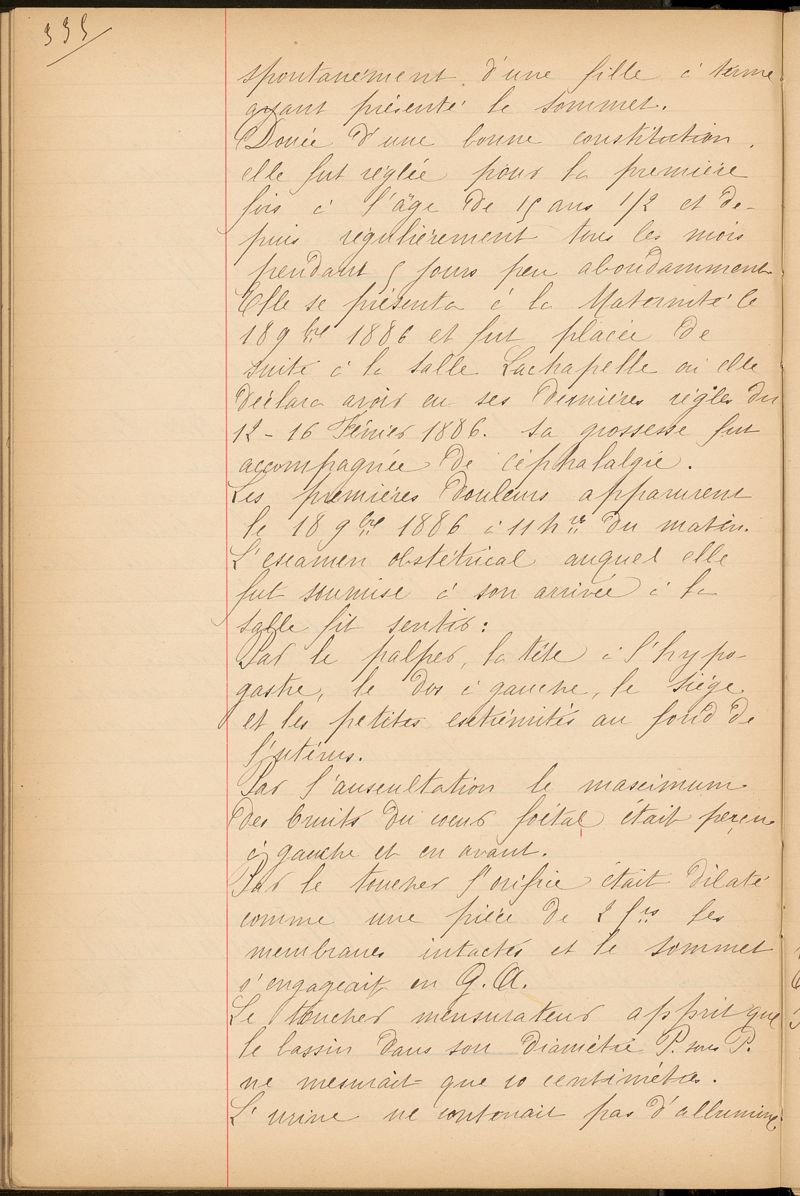 335
spontanément d'une fille à terme
ayant présenté le sommet.
Douée d'une bonne constitution,
elle fut réglée pour la première
fois à l'âge de 15 ans 1/2 et de-
puis régulièrement tous les mois
pendant 5 jours peu abondamment.
Elle se présenta à la Maternité le
18 9bre 1886 et fut placée de
suite à la salle Lachapelle où elle
déclara avoir eu ses dernières règles du
12-16 Février 1886. Sa grossesse fut
accompagnée de céphalalgie.
Les premières douleurs apparurent
le 18 9bre 1886 à 11 hres du matin.
L'examen obstétrical auquel elle
fut soumise à son arrivée à la
salle fit sentir:
Par le palper, la tête à l'hypo-
gastre, le dos à gauche, le siège
et les petites extrémités au fond de
l'utérus.
Par l'auscultation le maximum
des bruits du coeur foetal était perçu
à gauche et en avant.
Par le toucher l'orifice était dilaté
comme une pièce de 2 frs les
membranes intactes et le sommet
s'engageait en G.A.
Le toucher mensurateur apprit que
le bassin dans son diamètre P. sous P.
ne mesurait que 10 centimètres.
L'urine ne contenait pas d'albumine.